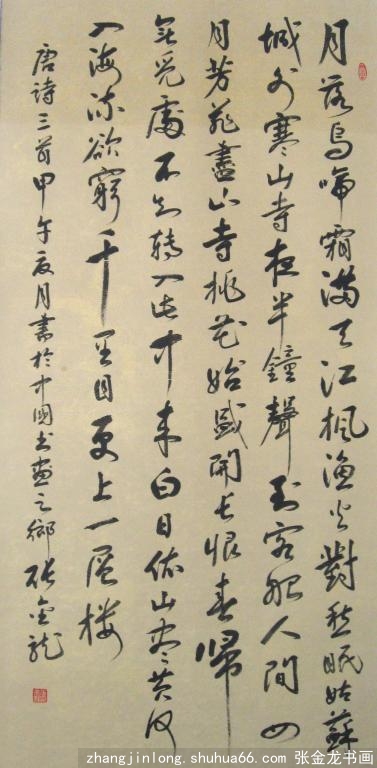 月落烏啼霜满天江枫渔火對愁眠姑蘇
城外寒山寺夜半鐘聲到客船人间四
月芳菲盡山寺桃花始盛開长恨春歸
无觅處不知转入此中来白日依山尽黄河
入海流欲窮千里目更上一层楼
唐诗三首甲午夏月書於中國书画之鄉张金龙
zhangjinlong.shuhua66.com 张金龙书画